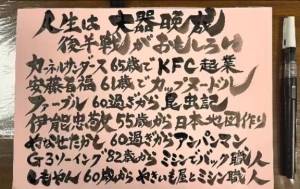 人生は大器晩成
後半戦がおもしろい
カーネルサンダース65歳でKFC起業
安藤百福61歳でカップヌードル
ファーブル60過ぎから昆虫記
伊能忠敬55歳から日本地図作り
やなせたかし60過ぎからアンパンマン
G3ソーイング82歳からミシンでバッグ職人
しもやん60歳からやきいも屋とミシン職人